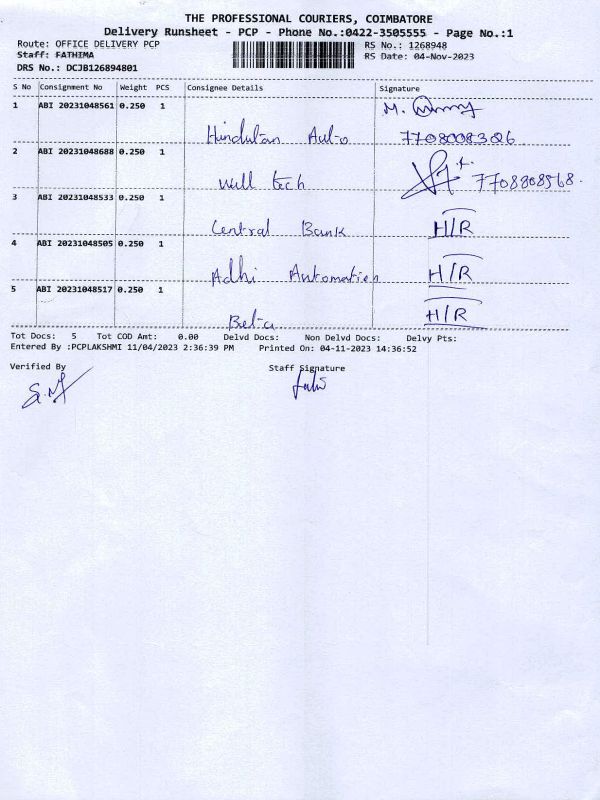 THE PROFESSIONAL COURIERS, COIMBATORE
Delivery Runsheet - PCP - Phone No.:0422-3505555 - Page No.:1
Route: OFFICE DELIVERY PCP RS No.: 1268948
Staff: FATHIMA RS Date: 04-Nov-2023
DRS No.: DCJB126894801
S No Consignment No Weight PCS Consignee Details Signature
1 ABI 20231048561 0.250 1 M.
Hindustan Auto 7708008326
2 ABI 20231048688 0.250 1
Will tech 7708808568.
3 ABI 20231048533 0.250 1
Central Bank H/R
4 ABI 20231048505 0.250 1
Adhi Automation H/R
5 ABI 20231048517 0.250 1
Beta H/R
Tot Docs: 5 Tot COD Amt: 0.00 Delvd Docs: Non Delvd Docs: Delvy Pts:
Entered By :PCPLAKSHMI 11/04/2023 2:36:39 PM Printed On: 04-11-2023 14:36:52
Verified By Staff Signature